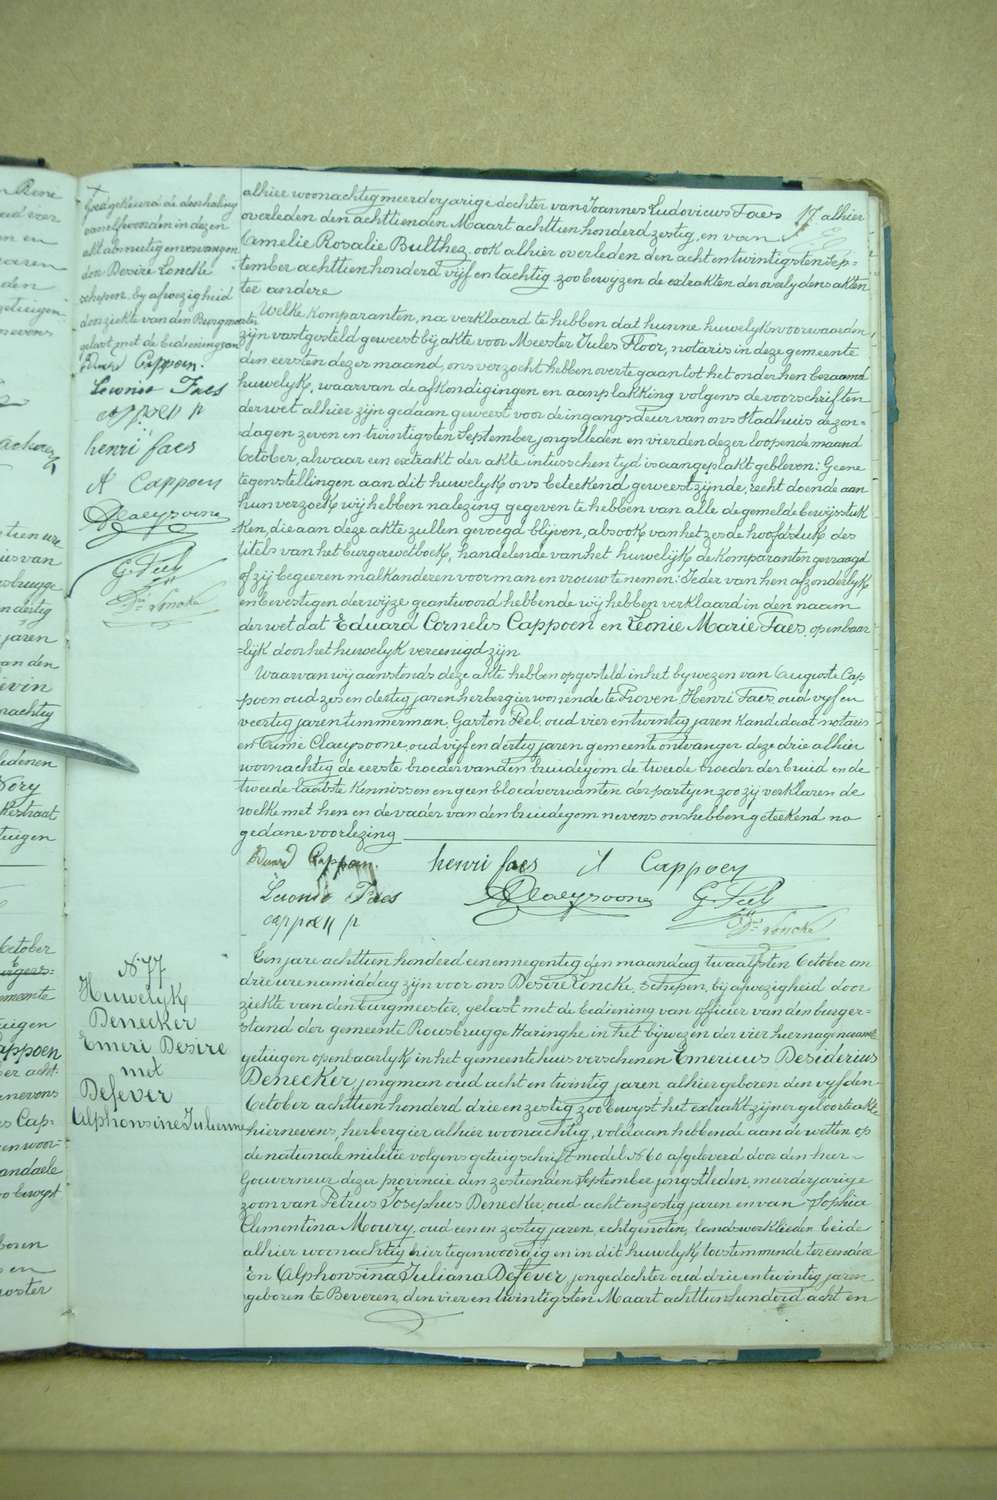 Goedgekeurd de doorhaling
van elf woorden in dezen
akt
door Desiré Loncke
schepen, by afwezigheid
door ziekte van den Burgmeester
gelast met de bediening van
Eduard Cappoen.
Leonie Faes
Cappoen p
henri faes
A Cappoen
CClaeysoone
G. Peel
Dré Loncke
alhier woonachtig meerderjarige dochter van Joannes Ludovicus Faes alhier
overleden den achttienden Maart achttien honderd zestig, en van
Amelie Rosalie Bulthez, ook alhier overleden den acht en twintigsten Sep=
tember achttien honderd vijf en tachtig zoo bewyzen de extrakten der overlydensakten
ter andere
Welke komparanten, na verklaard te hebben dat hunne huwelyksvoorwaarden
zijn vastgesteld geweest bij akte voor Meester Jules Floor, notaris in deze gemeente
den eersten dezer maand, ons verzocht hebben over te gaan tot het onder hen beraamd
huwelyk, waarvan de afkondigingen en aanplakking volgens de voorschriften
der wet alhier zijn gedaan geweest voor de ingangsdeur van ons stadhuis de zon=
dagen zeven en twintigsten September jongstleden en vierden dezer loopende maand
October, alwaar een extrakt der akte intusschen tyd is aangeplakt gebleven: Geene
tegenstellingen aan dit huwelyk ons beteekend geweest zijnde, recht doende aan
hun verzoek wij hebben nalezing gegeven te hebben van alle de gemelde bewijsstuk
ken, die aan deze akte zullen gevoegd blijven, alsook van het zesde hoofdstuk des
titels van het burgerwetboek, handelende van het huwelijk de komparanten gevraagd
of zij begeeren malkanderen voor man en vrouw te nemen: Ieder van hen afzonderlyk
en bevestigender wyze geantwoord hebbende wij hebben verklaard in den naam
der wet dat Eduard Cornelis Cappoen en Leonie Marie Faes, openbaar
=lijk door het huwelyk vereenigd zijn
Waarvan wij aanstonds deze akte hebben opgesteld in het bijwezen van Auguste Cap
poen oud zes en dertig jaren herbergier wonende te Proven, Henri Faes, oud vyf en
veertig jaren timmerman, Gaston Peel, oud vier en twintig jaren kandidaat notaris
en Claeysoone, oud vijf en dertig jaren gemeente ontvanger deze drie alhier
woonachtig de eerste broeder van den bruidegom de tweede broeder der bruid en de
tweede laatste kennissen en geen bloedverwanten der partyen zoo zij verklaren de
welke met hen en de vader van den bruidegom nevens ons hebben geteekend na
gedane voorlezing
Eduard Cappoen. henri faes A Cappoen
Leonie Faes CClaeysoone G. Peel
Cappoen p Dré Loncke
N° 77
Huwelyk
Denecker
Emeri Desire
met
Defever
Alphonsine Julienne
Een jare achttien honderd een en negentig den maandag twaalfsten October om
drie ure namiddag zijn voor ons Desiré Loncke, schepen, bij afwezigheid door
ziekte van den burgmeester, gelast met de bediening van officier van den burger=
stand der gemeente Rousbrugge Haringhe in het bijwezen der vier hiernagenaamde
getuigen openbaarlyk in het gemeentehuis verschenen Emericus Desiderius
Denecker, jongman oud acht en twintig jaren alhier geboren den vyfden
October achttien honderd drie en zestig zoo bewyst het extrakt zijner geboorteakte
hiernevens, herbergier alhier woonachtig, voldaan hebbende aan de wetten op
de nationale militie volgens getuigschrift model N° 60 afgeleverd door den heer
Gouverneur dezer provincie den zestienden September jongstleden, meerderjarige
zoon van Petrus Josephus Denecker, oud acht en zestig jaren en van Sophia
Clementina Moury, oud een en zestig jaren, echtgenoten, landswerklieden beide
alhier woonachtig hier tegenwoordig en in dit huwelyk toestemmende ter eendere
En Alphonsina Juliana Defever jongedochter oud drie en twintig jaren
geboren te Beveren, den vier en twintigsten Maart achttien honderd acht en